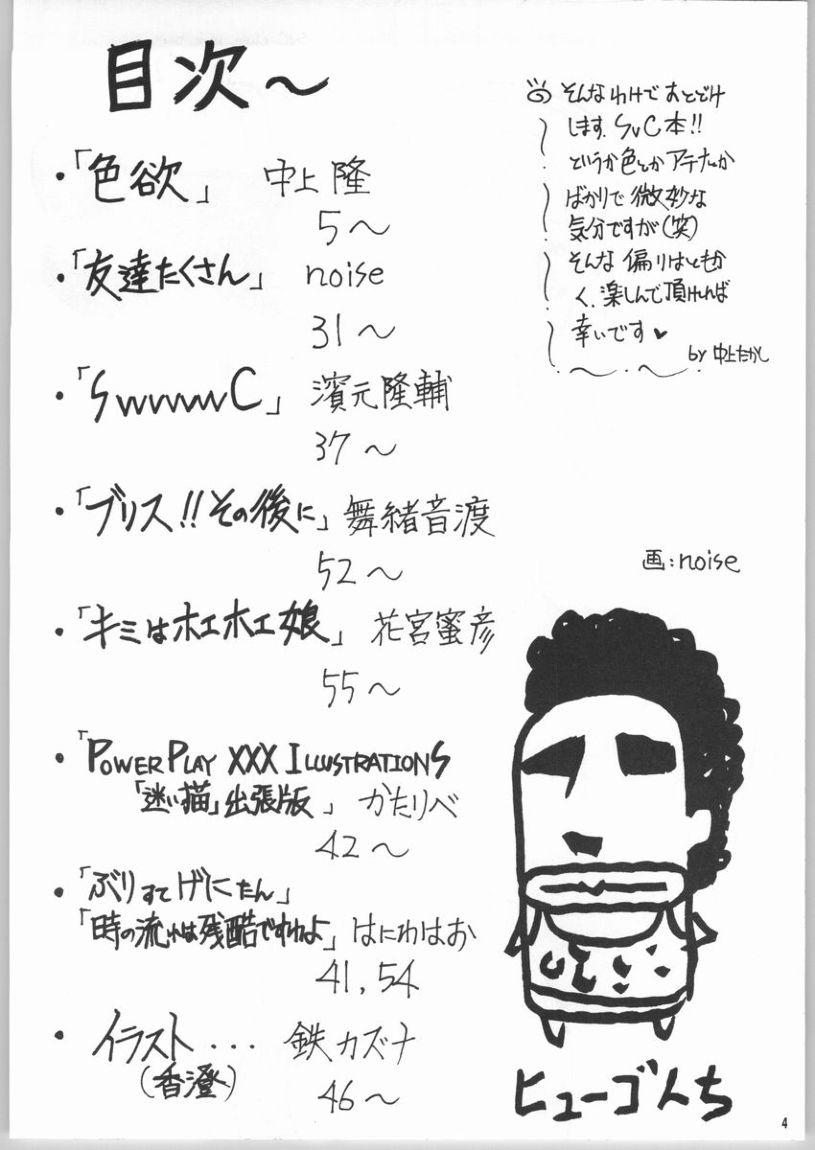 目次～
・「色欲」 中上 隆
5～
・「友達たくさん」 noise
31～
・「SvvvvvvC」 濱元隆輔
37～
・「ブリス!!その後に」舞緒音渡
52～
・「キミはホエホエ娘」 花宮蜜彦
55～
・「POWER PLAY XXX ILLUSTRATIONS
「迷い猫」出張版」 かたりべ
42～
・「ぶりすてげにたん」
「時の流れは残酷ですわよ」はにわはお
41,54
・ イラスト・・・ 鉄カズナ
(香澄)
46～
そんなわけでおとどけ
します、SvC本!!
というか色とかアテナとか
ばかりで微妙な
気分ですが(笑)
そんな偏りはともか
く、楽しんで頂ければ
幸いです♥
by 中上たかし
画:noise
ヒューゴんち
4